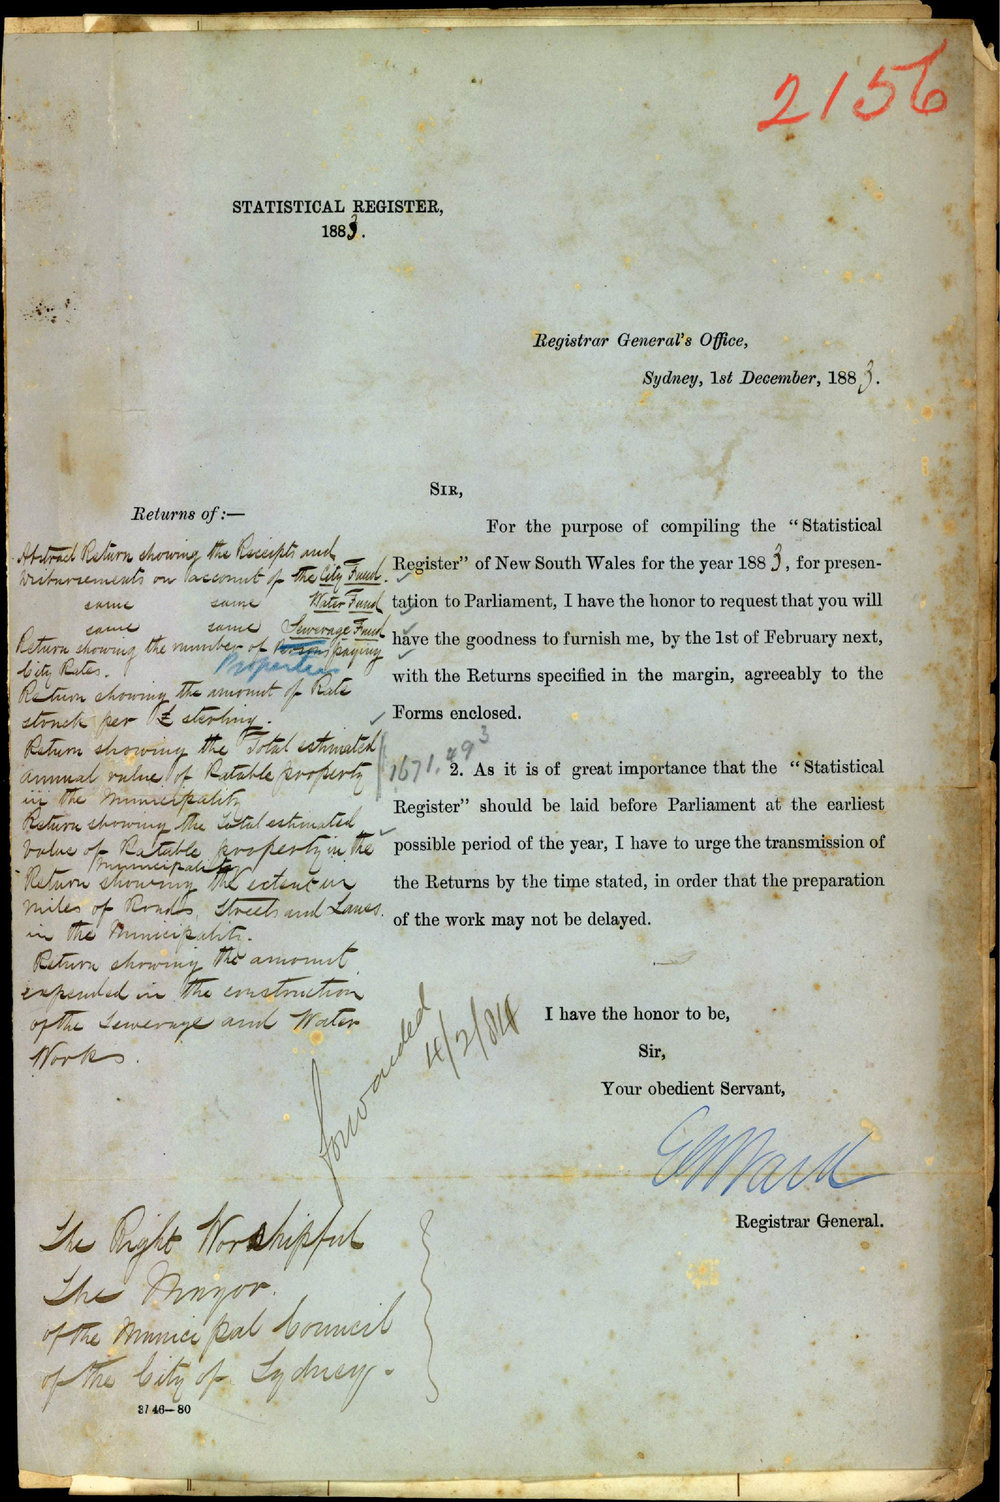 2156
STATISTICAL REGISTER,
1883.
Registrar General's Office,
Sydney, 1st December, 1883.
Returns of:—
Abstract Return showing the Receipts and
Disbursements on account of the City Fund.
same same Water Fund
same same Sewerage Fund
Return showing the number of Persons paying
Properties
City Rates.
Return showing the amount of Rate
struck per £ sterling.
Return showing the Total estimated
annual value of Ratable property
in the Municipality
Return showing the total estimated
value of Ratable property in the
Municipality
Return showing the extent in
miles of Roads, Streets and Lanes.
in the Municipality.
Return showing the amount
expended in the construction
of the Sewerage and Water
Works.
SIR,
For the purpose of compiling the "Statistical
Register" of New South Wales for the year 1883, for presen-
tation to Parliament, I have the honor to request that you will
have the goodness to furnish me, by the 1st of February next,
with the Returns specified in the margin, agreeably to the
Forms enclosed.
1671.493
2. As it is of great importance that the "Statistical
Register" should be laid before Parliament at the earliest
possible period of the year, I have to urge the transmission of
the Returns by the time stated, in order that the preparation
of the work may not be delayed.
forwarded
4/2/84
I have the honor to be,
Sir,
Your obedient Servant,
EGWard
Registrar General.
The Right Worshipful
The Mayor.
of the Municipal Council
of the City of Sydney.
3746—80